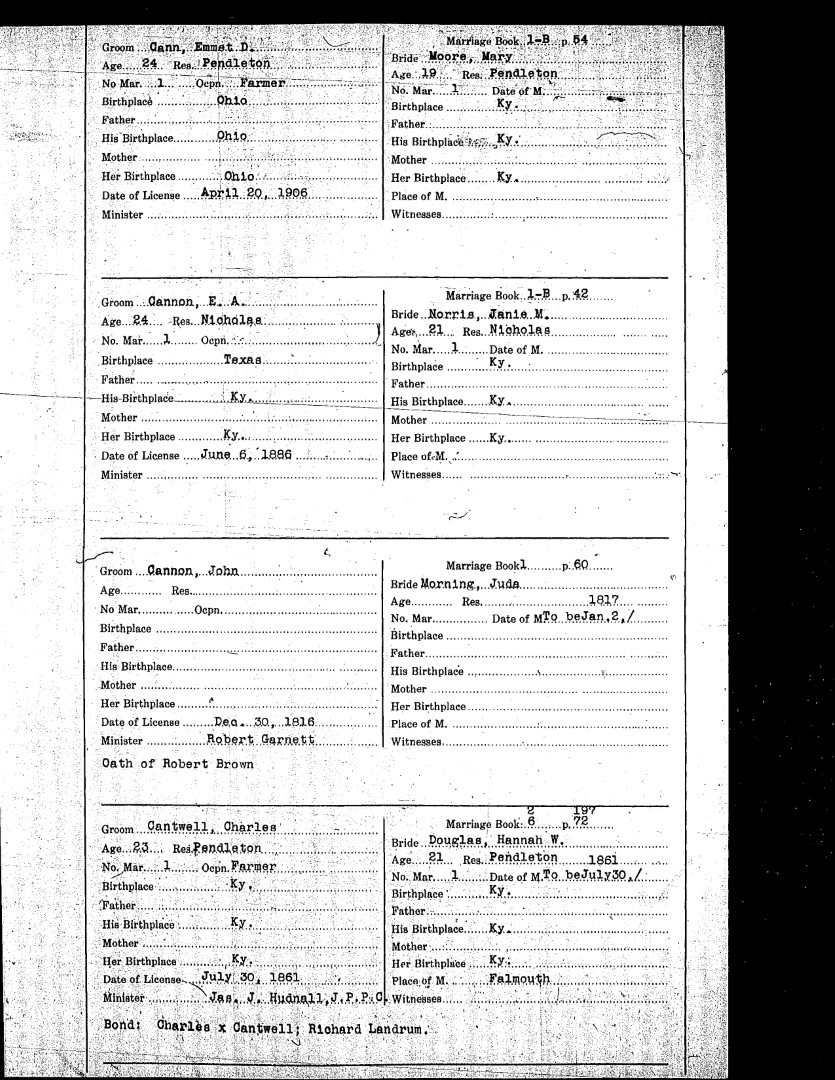 Groom Cann, Emmet D.
Age 24 Res. Pendleton
No Mar. 1 Ocpn. Farmer
Birthplace Ohio
Father
His Birthplace Ohio
Mother
Her Birthplace Ohio
Date of License April 20, 1906
Minister
Marriage Book 1-B p. 54
Bride Moore, Mary
Age 19 Res. Pendleton
No. Mar. 1 Date of M.
Birthplace Ky.
Father
His Birthplace Ky.
Mother
Her Birthplace Ky.
Place of M.
Witnesses
Groom Cannon, E. A.
Age 24 Res. Nicholas
No. Mar. 1 Ocpn.
Birthplace Texas
Father
His Birthplace Ky.
Mother
Her Birthplace Ky.
Date of License June 6, 1886
Minister
Marriage Book 1-B p. 42
Bride Norris, Janie M.
Age 21 Res. Nicholas
No. Mar. 1 Date of M.
Birthplace Ky.
Father
His Birthplace Ky.
Mother
Her Birthplace Ky.
Place of M.
Witnesses
Groom Cannon, John
Age Res.
No Mar. Ocpn.
Birthplace
Father
His Birthplace
Mother
Her Birthplace
Date of License Dec. 30, 1816
Minister Robert Garnett
Oath of Robert Brown
Marriage Book 1 p. 60
Bride Morning, Juda
Age Res. 1817
No. Mar. Date of M. To be Jan. 2, /
Birthplace
Father
His Birthplace
Mother
Her Birthplace
Place of M.
Witnesses
Groom Cantwell, Charles
Age 23 Res. Pendleton
No. Mar. 1 Ocpn. Farmer
Birthplace Ky.
Father
His Birthplace Ky.
Mother
Her Birthplace Ky.
Date of License July 30, 1861
Minister Jas. J. Hudnall, J.P.P.C.
Bond: Charles x Cantwell; Richard Landrum.
2 197
Marriage Book: 6 p. 72
Bride Douglas, Hannah W.
Age 21 Res. Pendleton 1861
No. Mar. 1 Date of M. To be July 30, /
Birthplace Ky.
Father
His Birthplace Ky.
Mother
Her Birthplace Ky.
Place of M. Falmouth
Witnesses